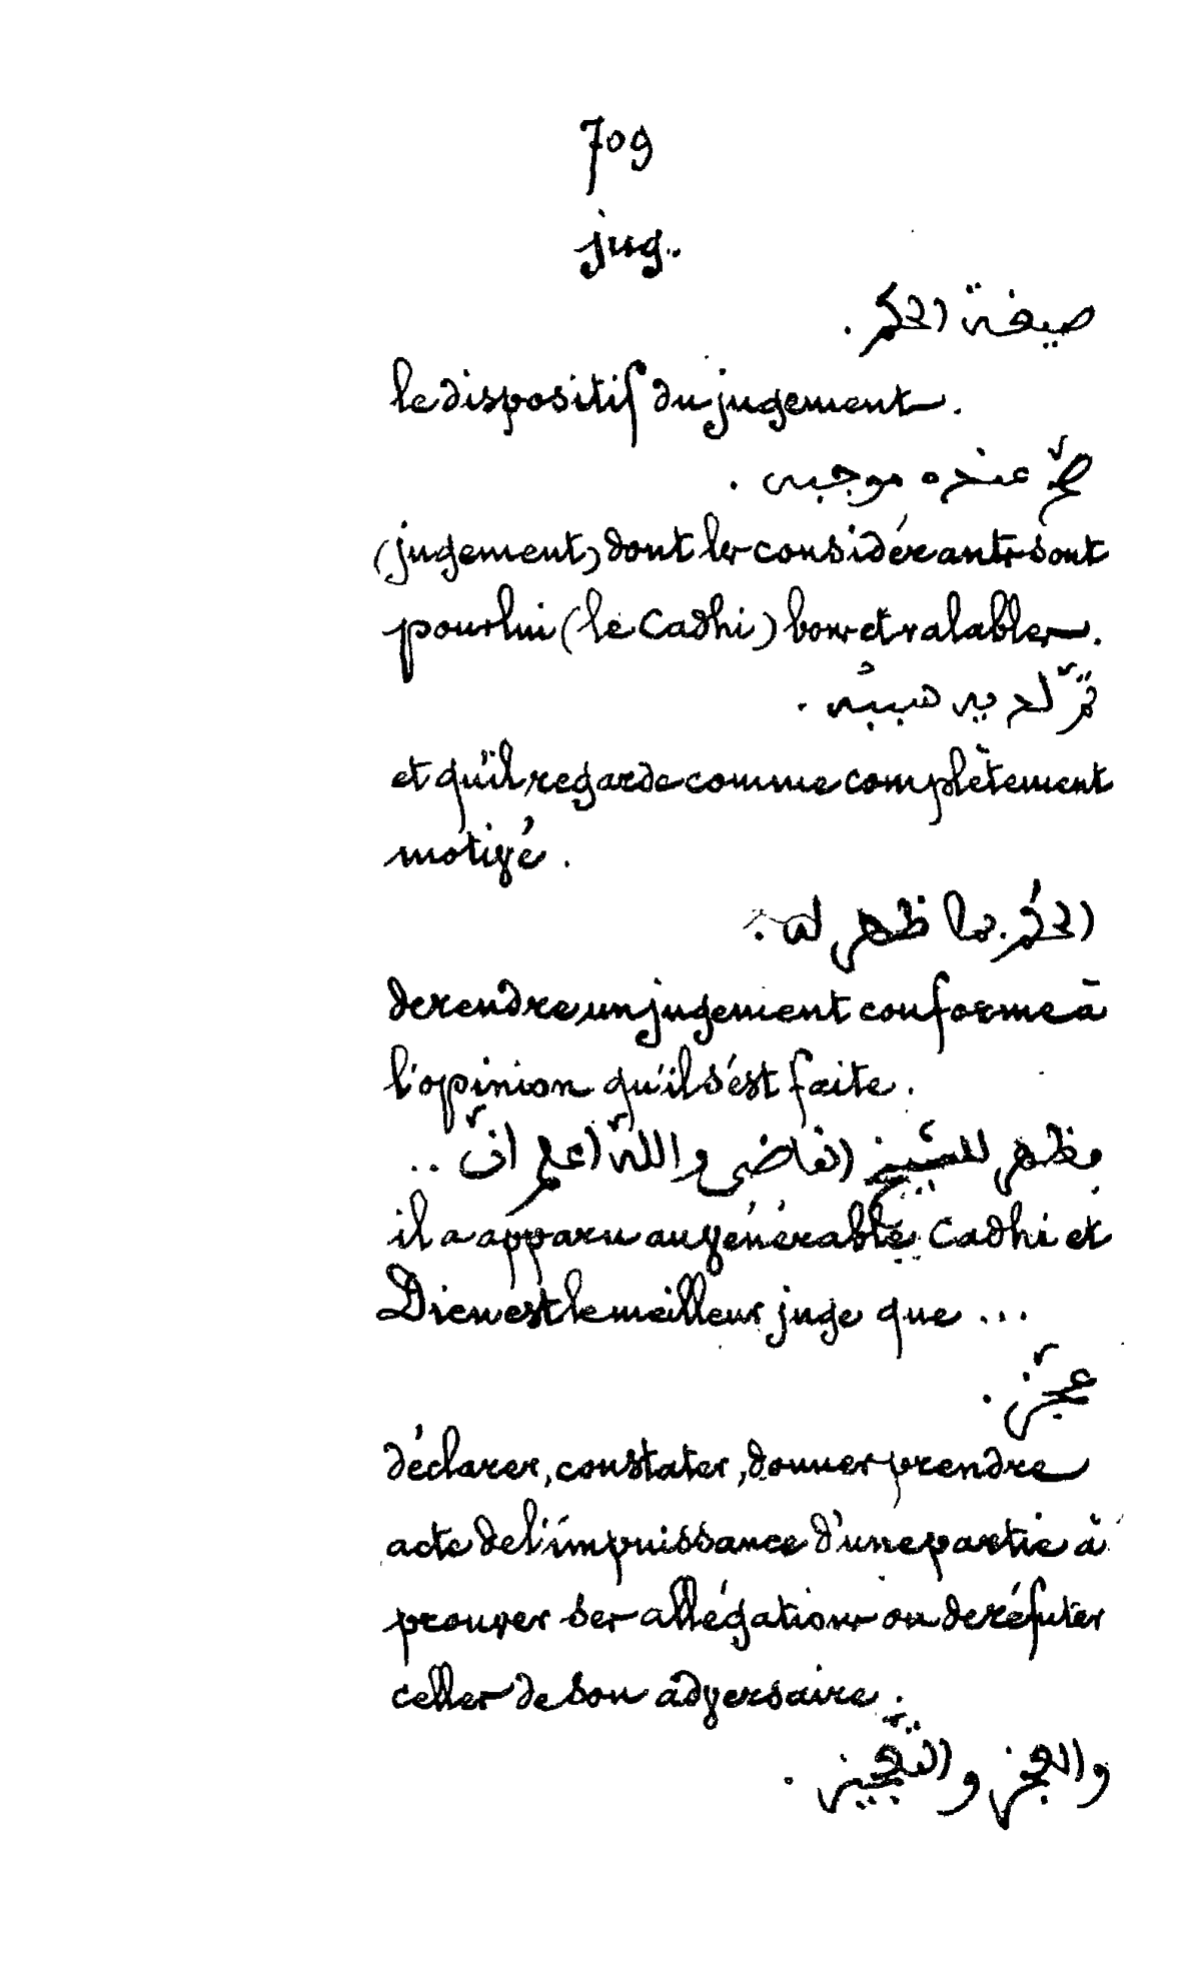 709
jug..
صيغة الحكم.
le dispositif du jugement.
صحّ عنده موجبه.
(jugement) dont les considérants sont
pour lui (le Cadhi) bons et valables.
تمّ لديه سببُه.
et qu'il regarde comme complètement
motivé.
الحكمُ بما ظهر له.
de rendre un jugement conforme à
l'opinion qu'il s'est faite.
وظهر للشيخ القاضى واللّه اعلم انّ ..
il a apparu au vénérable Cadhi et
Dieu est le meilleur juge que ...
عجّز.
déclarer, constater, donner prendre
acte de l'impuissance d'une partie à
prouver ses allégations ou de réfuter
celles de son adversaire.
والعجز والتّعجيز.